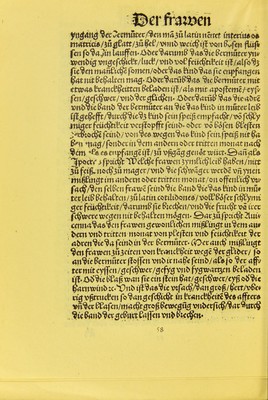 Der frawen
yngang der Bermůter/den mā zu latin nēnet interius os
matricis/zů glatt/zů hel/vnnd weich ist von bösen flüß
sen so da in lauffen. Oder darumb das die bermůter yn
wendig vngeschickt/luck/vnd vol feüchtikeit ist/also dz
sie den manliche somen/oder das kind das sie empfangen
hat nit behalten mag. Oder darūb das die bermůter mit
etwas kranckheiten beladen ist/als mit apostemē/eys
sen/geschwer/vnd der glichen. Oder darūb das die adrē
vnd die band der bermůter an die das kind in můter leib
ist gehefft/durch die dz kind sein speiß empfacht/vō schly
miger feüchtikeit verstopfft sind oder vō bösen blesten
zerbrochē seind/von des wegen das kind sein speiß nit ha
ben mag/sonder in dem andern oder tritten monat nach
dem es empfangē ist/zů vngang geneigt wirt. Dan als
Ipocras spricht Welche frawen zymlich leib haben/nit
zů feiß/noch zů mager/vnd die schwāger werdē vn ynen
mißlingt im andern oder tritten monat/on offenlich vr
sach/den selben frawē seind die band die das kind in mů
ter leib behalten/zů latin cotilidones/vol bößer schlymi
ger feüchtikeit/darumb sie brechen/vnd die frucht vō irer
schwere wegen nit behaltē mögen. Dar zů spricht Aui
cenna das den frawen gewonlichen mißlingt in dem an
dern vnd tritten monat von blesten vnd feüchtikeit der
adren die da seind in der bermůter. Oder auch mißlingt
den frawen zů zeiten von kranckheit wegē der glider/so
an die bermůter stossen vnd ir nahe seind/als so der aff
ter mit eyssen/geschwer/
ist. Od die blaß wan sie ein stein hat/geschwer/eyß od die
harnwind
des affters
vn der blasen/macht groß bewegūg vndersich/dar durch
die band der geburt lassen vnd brechen.